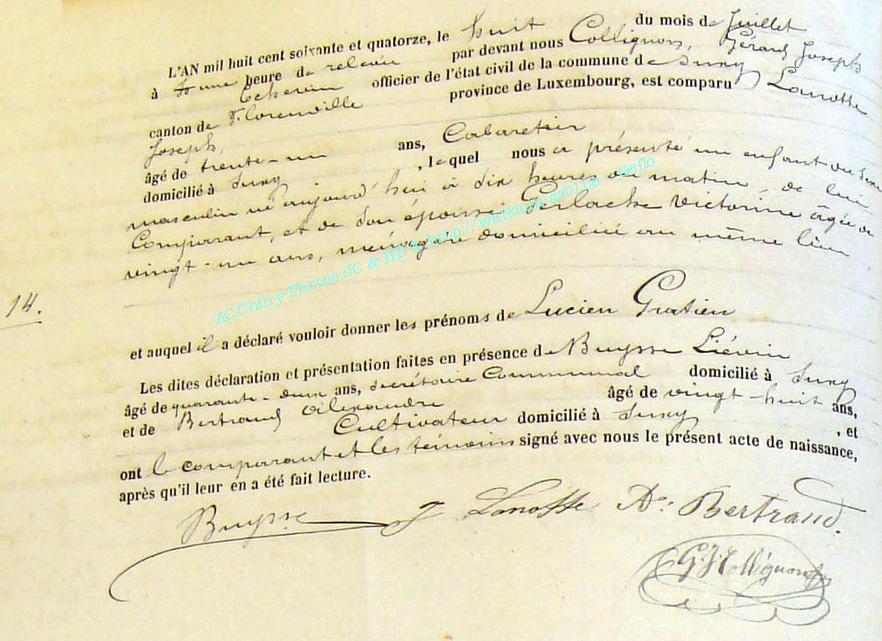 L'AN mil huit cent soixante et quatorze, le huit du mois de Juillet
à une heure de relevée par devant nous Collignon, Gérard Joseph
Echevin officier de l'état civil de la commune de Suxy
canton de Florenville province de Luxembourg, est comparu Lanotte
Joseph,
âgé de trente-un ans, Cabaretier
domicilié à Suxy , lequel nous a présenté un enfant du sexe
masculin né aujourd'hui à dix heures du matin, de lui
Comparant, et de son épouse Gerlache Victorine âgée de
vingt-un ans, ménagère domiciliée au même lieu
14.
et auquel il a déclaré vouloir donner les prénoms de Lucien Gratien
Les dites déclaration et présentation faites en présence de Buysse Liévin
âgé de quarante-deux ans, secrétaire Communal domicilié à Suxy
et de Bertrand Alexandre âgé de vingt-huit ans,
Cultivateur domicilié à Suxy , et
ont le comparant et les témoins signé avec nous le présent acte de naissance,
après qu'il leur en a été fait lecture.
Buysse J Lanotte Ax: Bertrand.
G J Collignon
AC.Chiny-Photos JC & HB